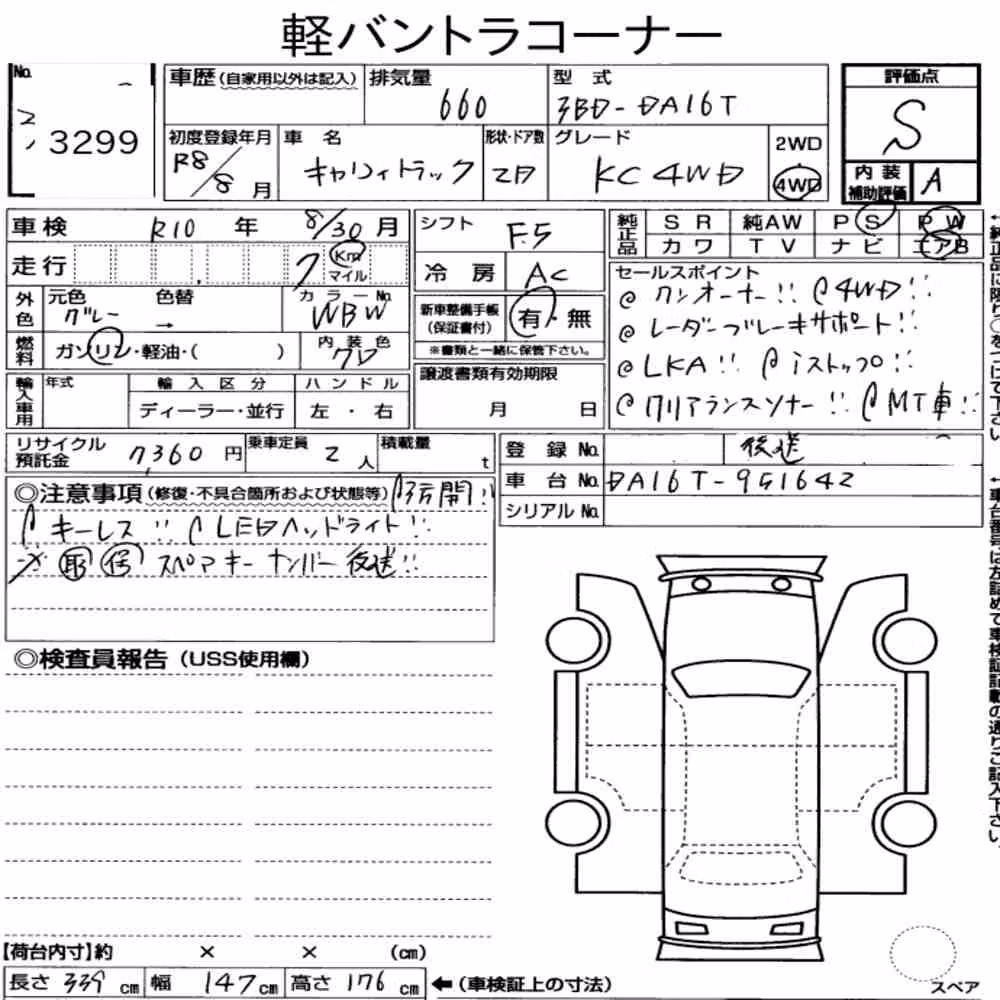 軽バントラコーナー
No.
3299
車歴(自家用以外は記入)
排気量
660
型 式
3BD-DA16T
評価点
S
初度登録年月
R8/8 月
車 名
キャリィトラック
形状・ドア数
2D
グレード
KC 4WD
2WD
4WD
内装補助評価
A
車検 R10 年 8/30 月
シフト
F.5
純正品
SR 純AW PS PW
カワ TV ナビ エアB
走行
7 Km マイル
冷 房
AC
セールスポイント
ワンオーナー!! 4WD!!
レーダーブレーキサポート!!
LKA!! iストップ!!
クリアランスソナー!! MT車!!
外色
元色 色替
グレー →
カラーNo.
WBW
新車整備手帳(保証書付)
有・無
※書類と一緒に保管下さい。
燃料
ガソリン・軽油・( )
内 装 色
クロ
輸入車用
年式
輸入区分
ディーラー・並行
ハンドル
左・右
譲渡書類有効期限
月 日
リサイクル預託金
7,360 円
乗車定員
2 人
積載量
t
登 録 No.
後送
車 台 No.
DA16T-951642
シリアル No.
◎注意事項(修復・不具合箇所および状態等)
キーレス!! LEDヘッドライト!!
※ 取 保 スペアキー ナンバー 後送!!
◎検査員報告(USS使用欄)
【荷台内寸】約 × × (cm)
長さ 339 cm 幅 147 cm 高さ 176 cm ←(車検証上の寸法)
スペア